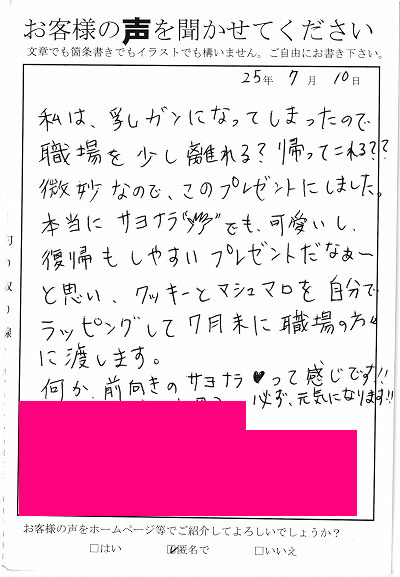 お客様の声を聞かせてください
文章でも箇条書きでもイラストでも構いません。ご自由にお書き下さい。
25年 7月 10日
私は、乳ガンになってしまったので
職場を少し離れる?帰ってこれる??
微妙なので、このプレゼントにしました。
本当にサヨナラ でも、可愛いし、
復帰もしやすいプレゼントだなぁー
と思い、クッキーとマシュマロを自分で
ラッピングして7月末に職場の方々
に渡します。
何か、前向きのサヨナラ♥って感じです!!
必ず、元気になります!!
お客様の声をホームページ等でご紹介してよろしいでしょうか?
□はい ☑匿名で □いいえ